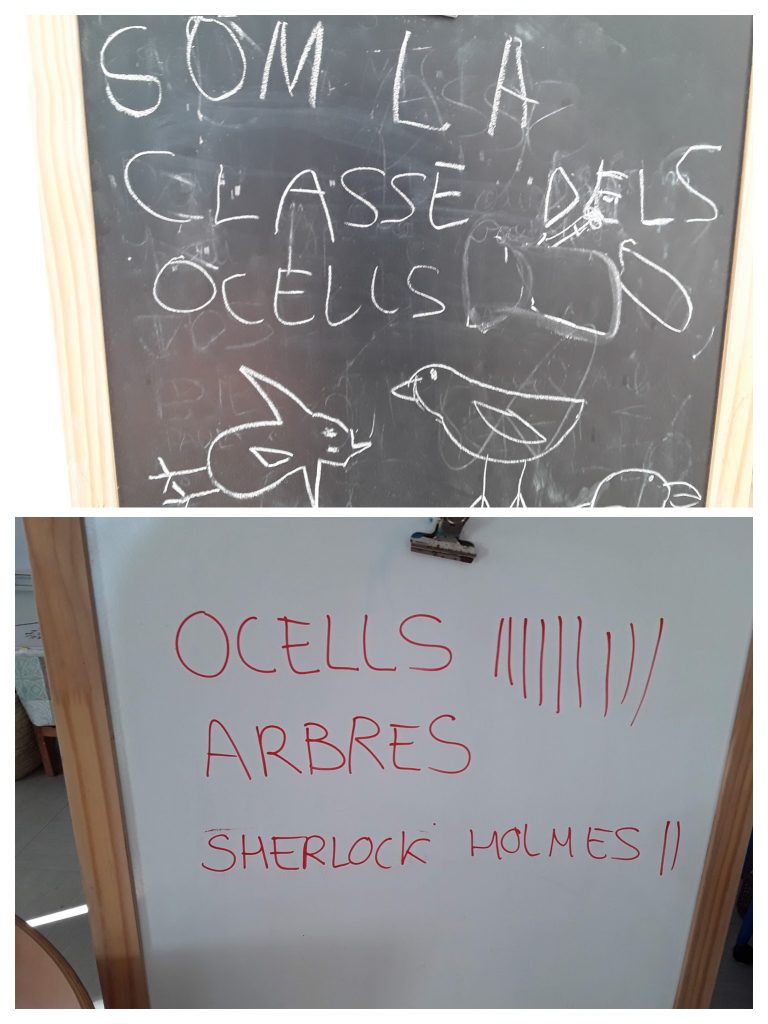 SOM LA
CLASSE DELS
OCELLS
OCELLS |||||||||
ARBRES
SHERLOCK HOLMES ||